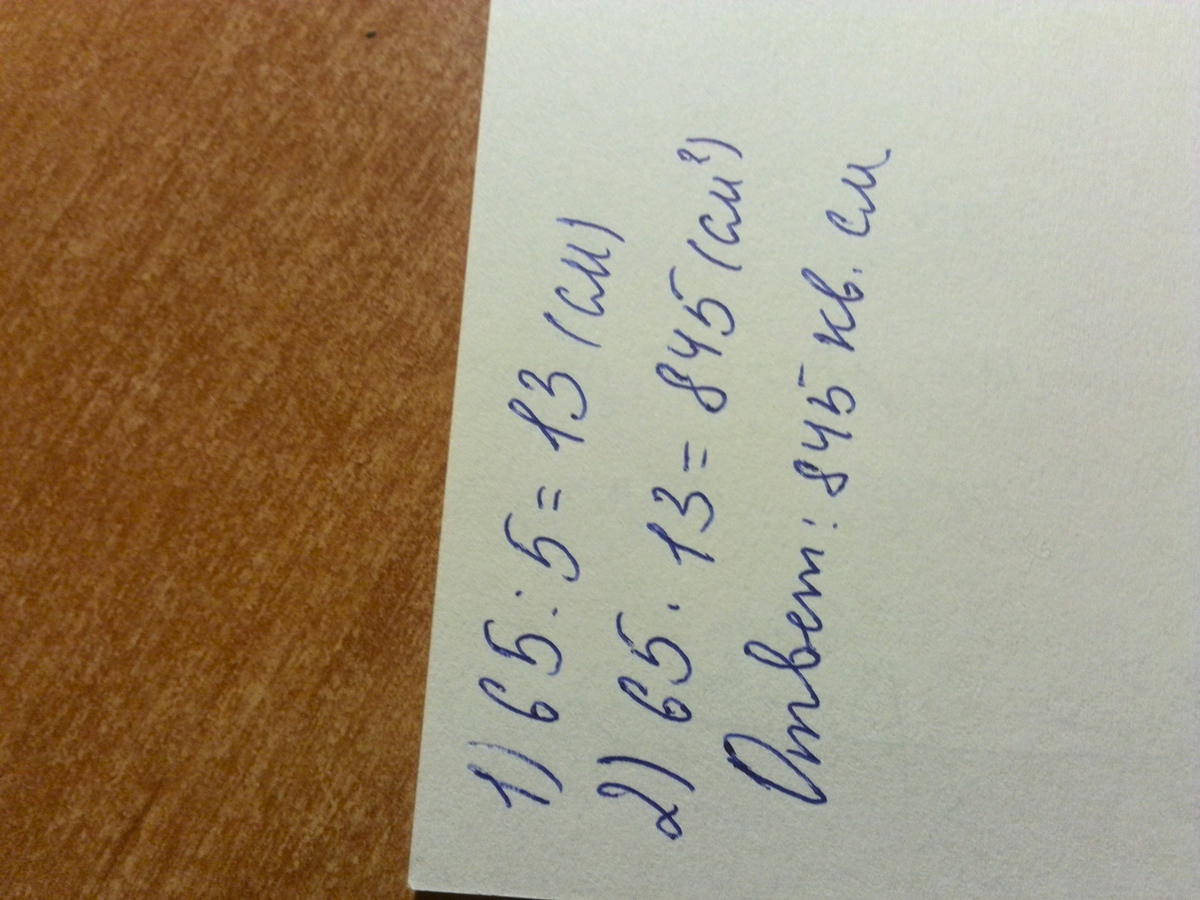 1) 65 : 5 = 13 (см)
2) 65 · 13 = 845 (см²)
Ответ: 845 кв. см